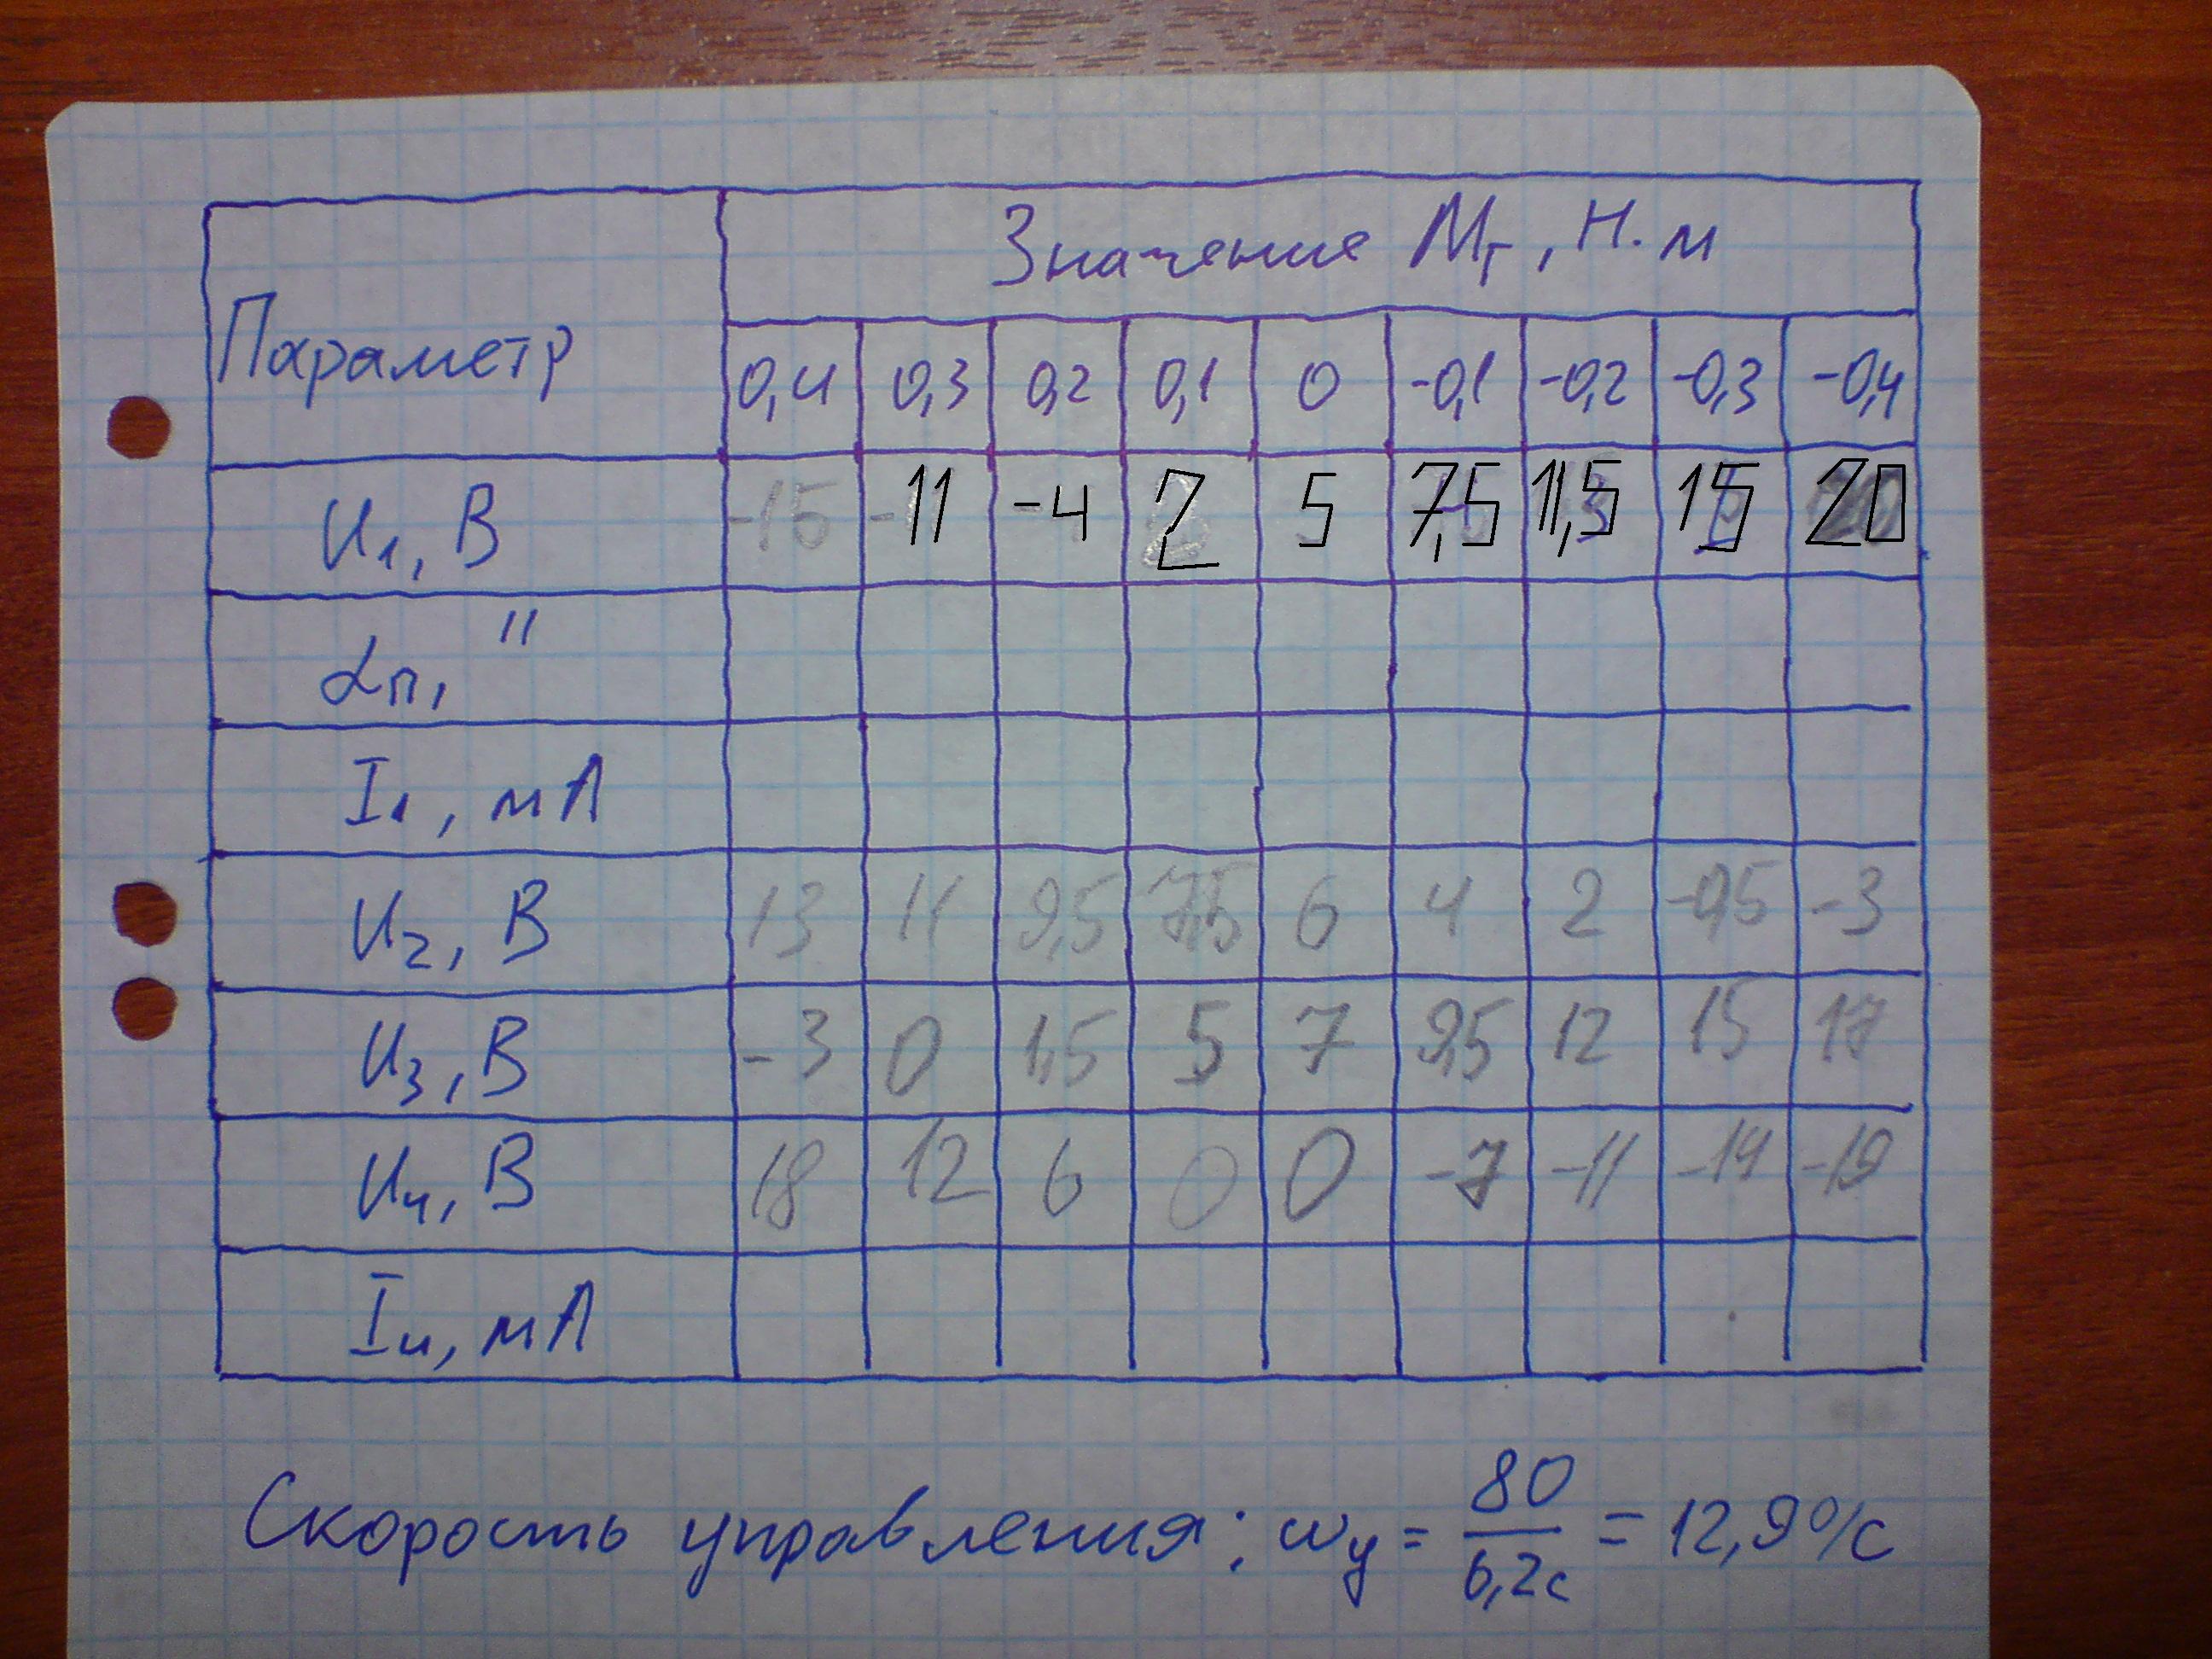 Параметр
Значение Mг, Н.м
0,4 0,3 0,2 0,1 0 -0,1 -0,2 -0,3 -0,4
U1, В -15 -11 -4 2 5 7,5 11,5 15 20
αп, "
I1, мА
U2, В 13 11 9,5 7,5 6 4 2 -0,5 -3
U3, В -3 0 1,5 5 7 9,5 12 15 17
U4, В 18 12 6 0 0 -7 -11 -14 -19
I4, мА
Скорость управления: ωy = 80/6,2с = 12,9°/с